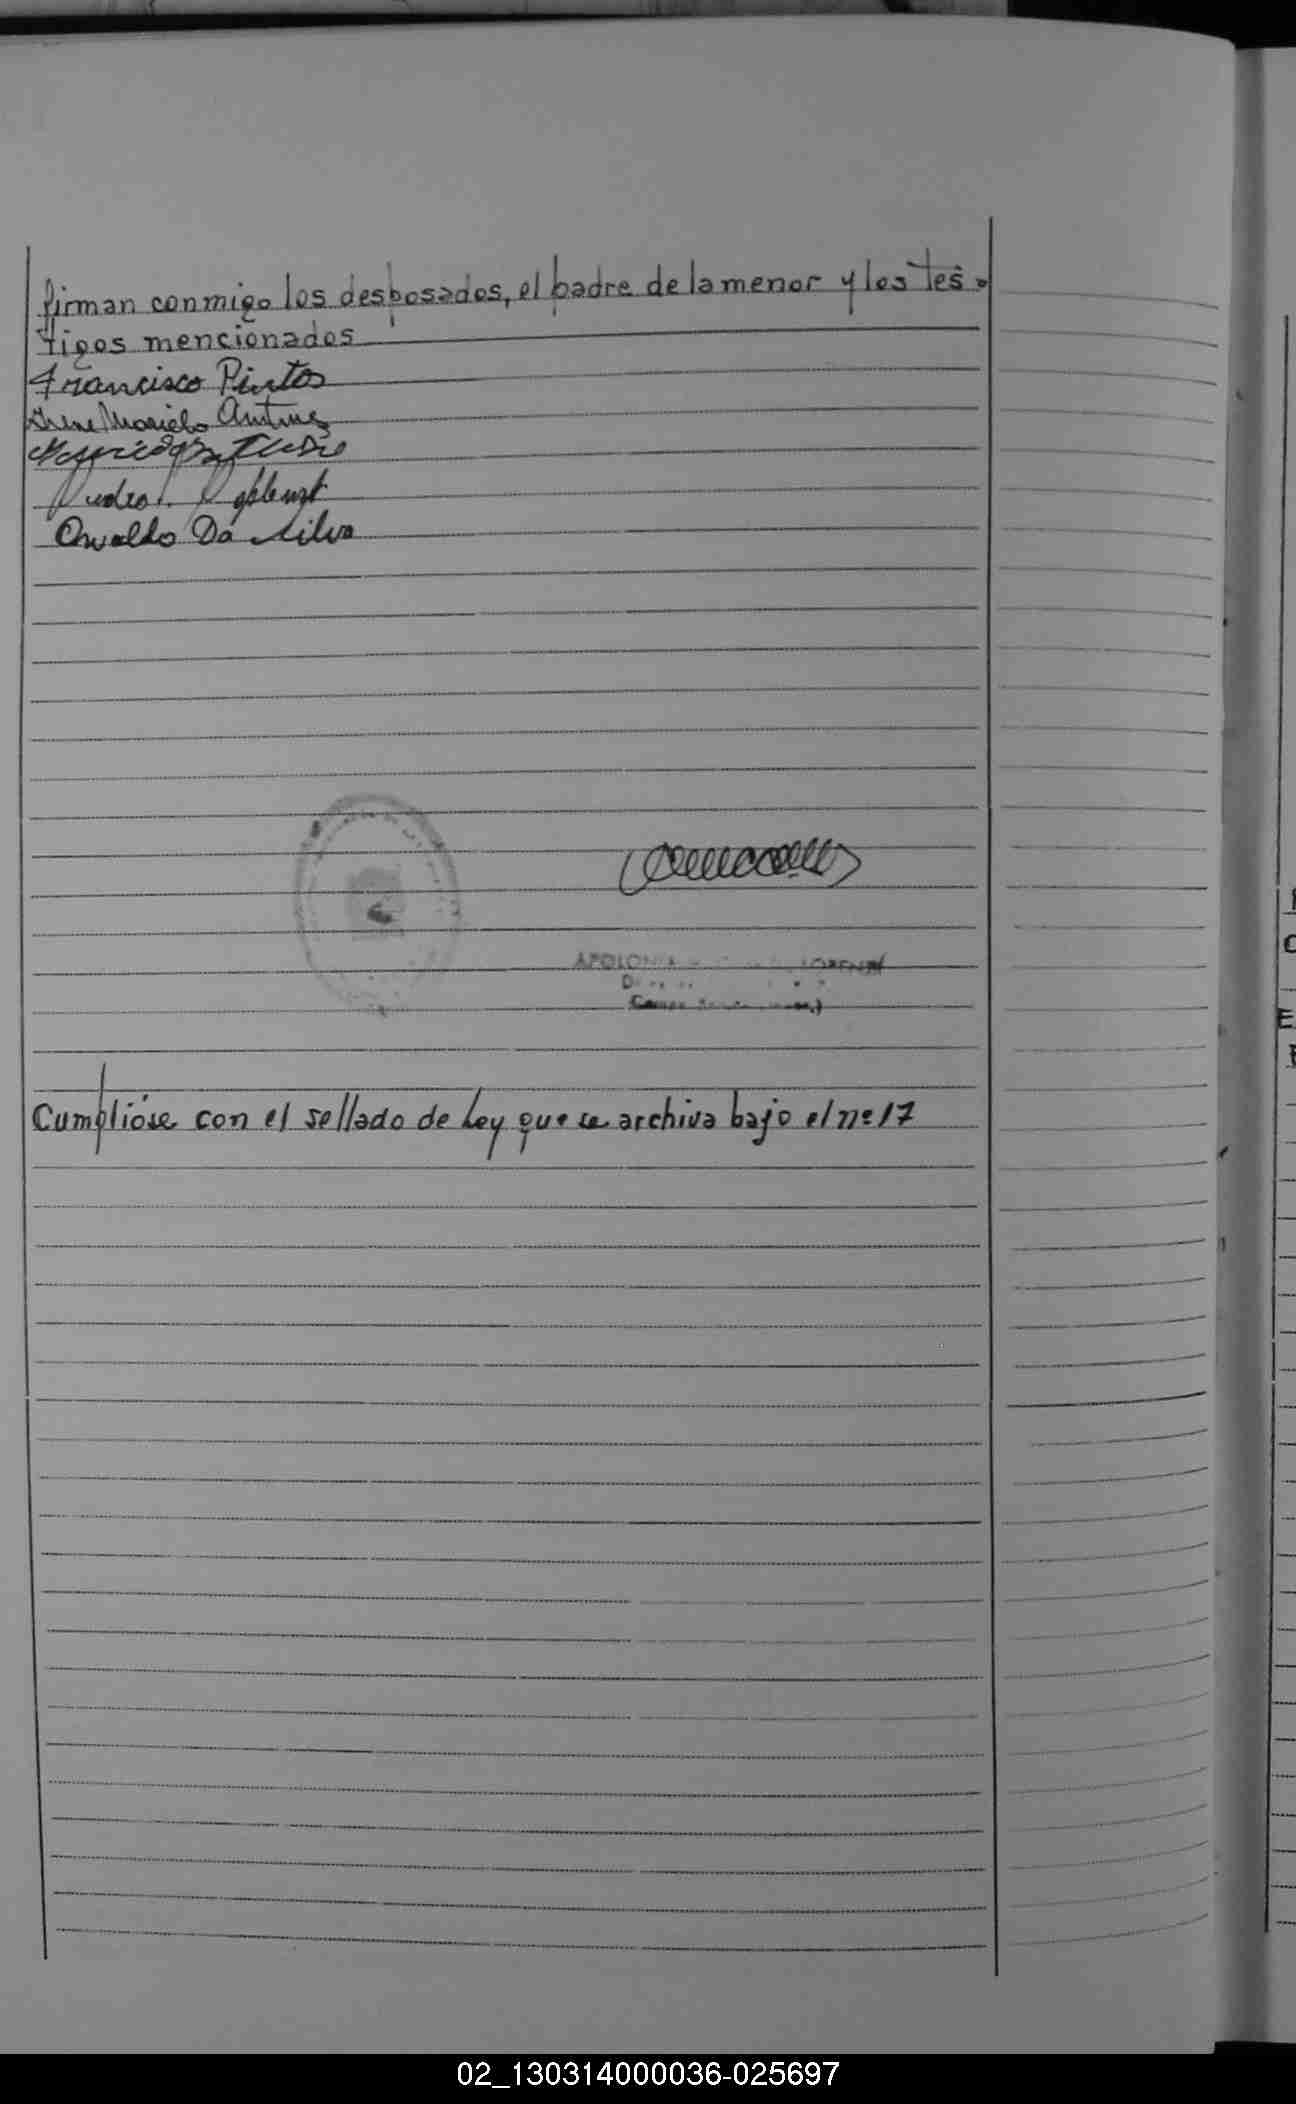 firman conmigo los desposados, el padre de la menor y los tes-
tigos mencionados
Francisco Pintos
Antunez
Pedro
Osvaldo Da Silva
APOLONIA
Cumplióse con el sellado de Ley que se archiva bajo el nº 17
02_130314000036-025697